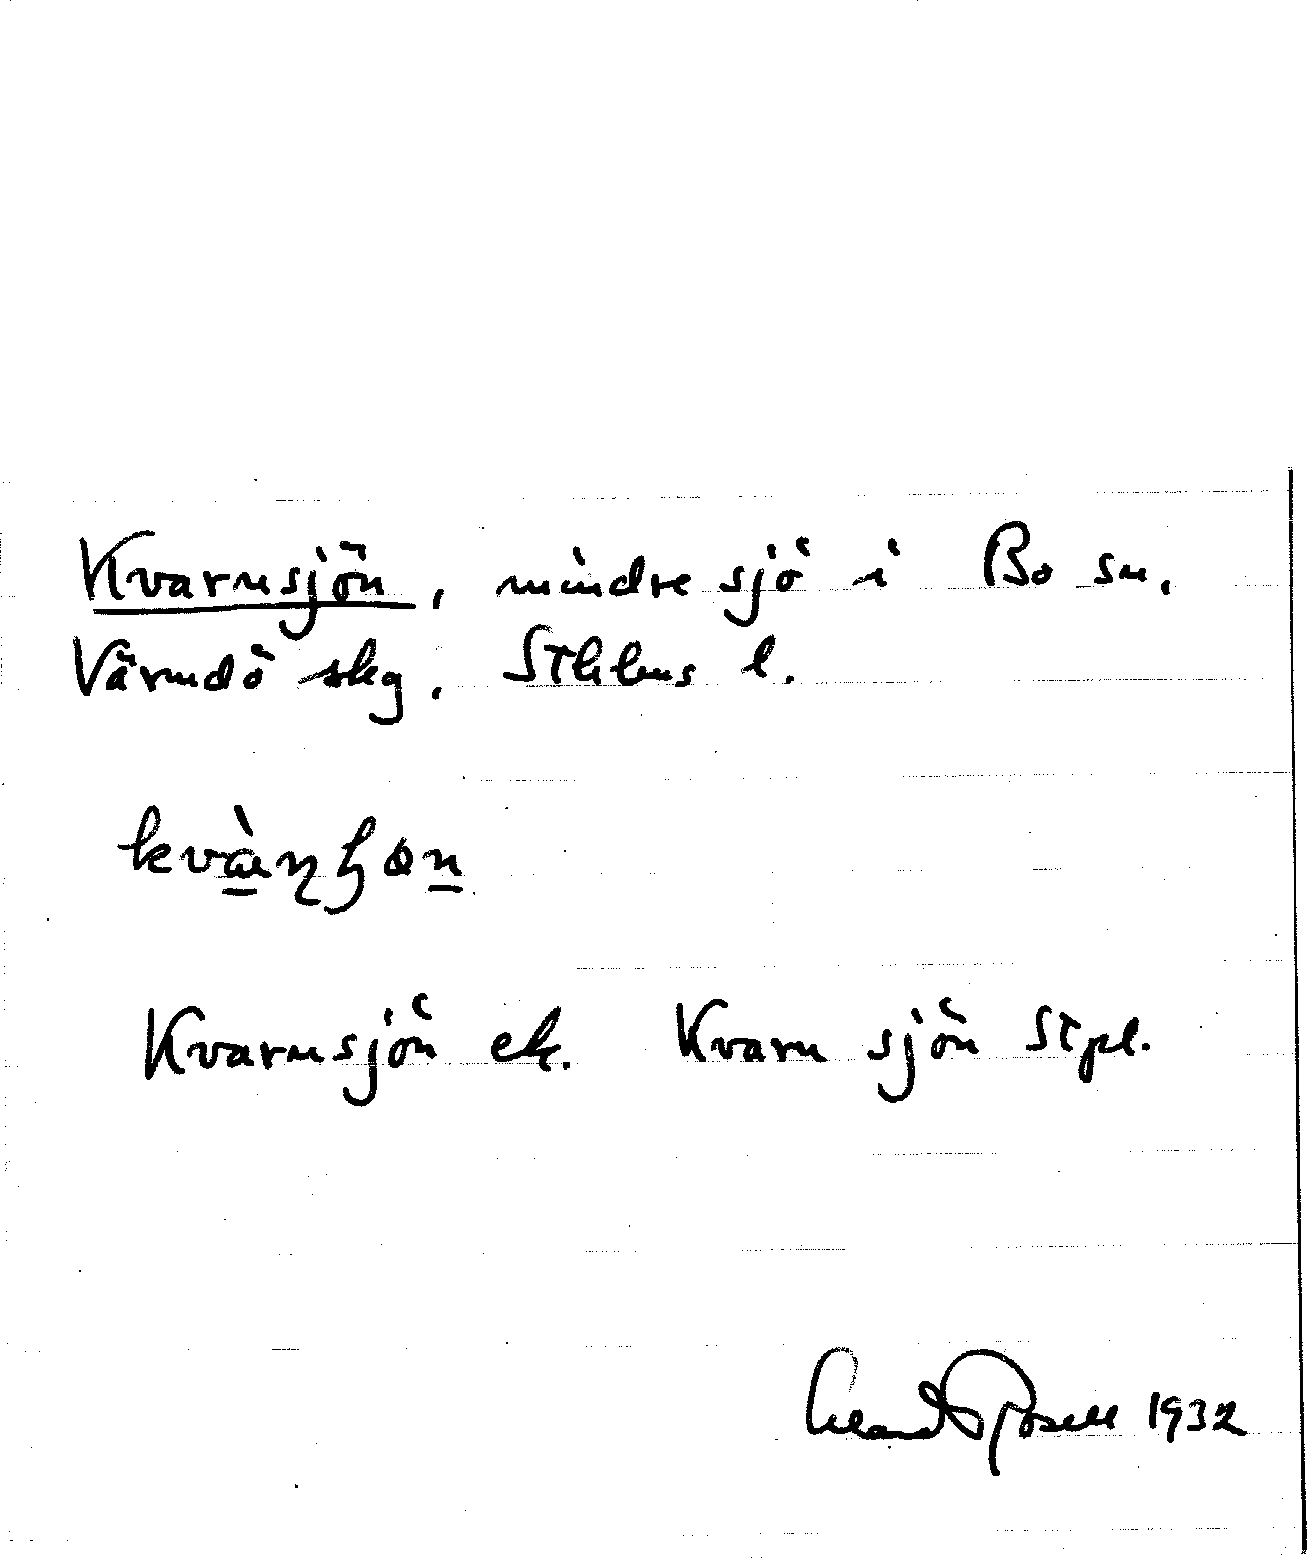 Kvarnsjön, mindre sjö i Bo sn.
Värmdö skg. Sthlms l.
Kvarnsjön ek. Kvarn sjön Stpl.
Rosell 1932